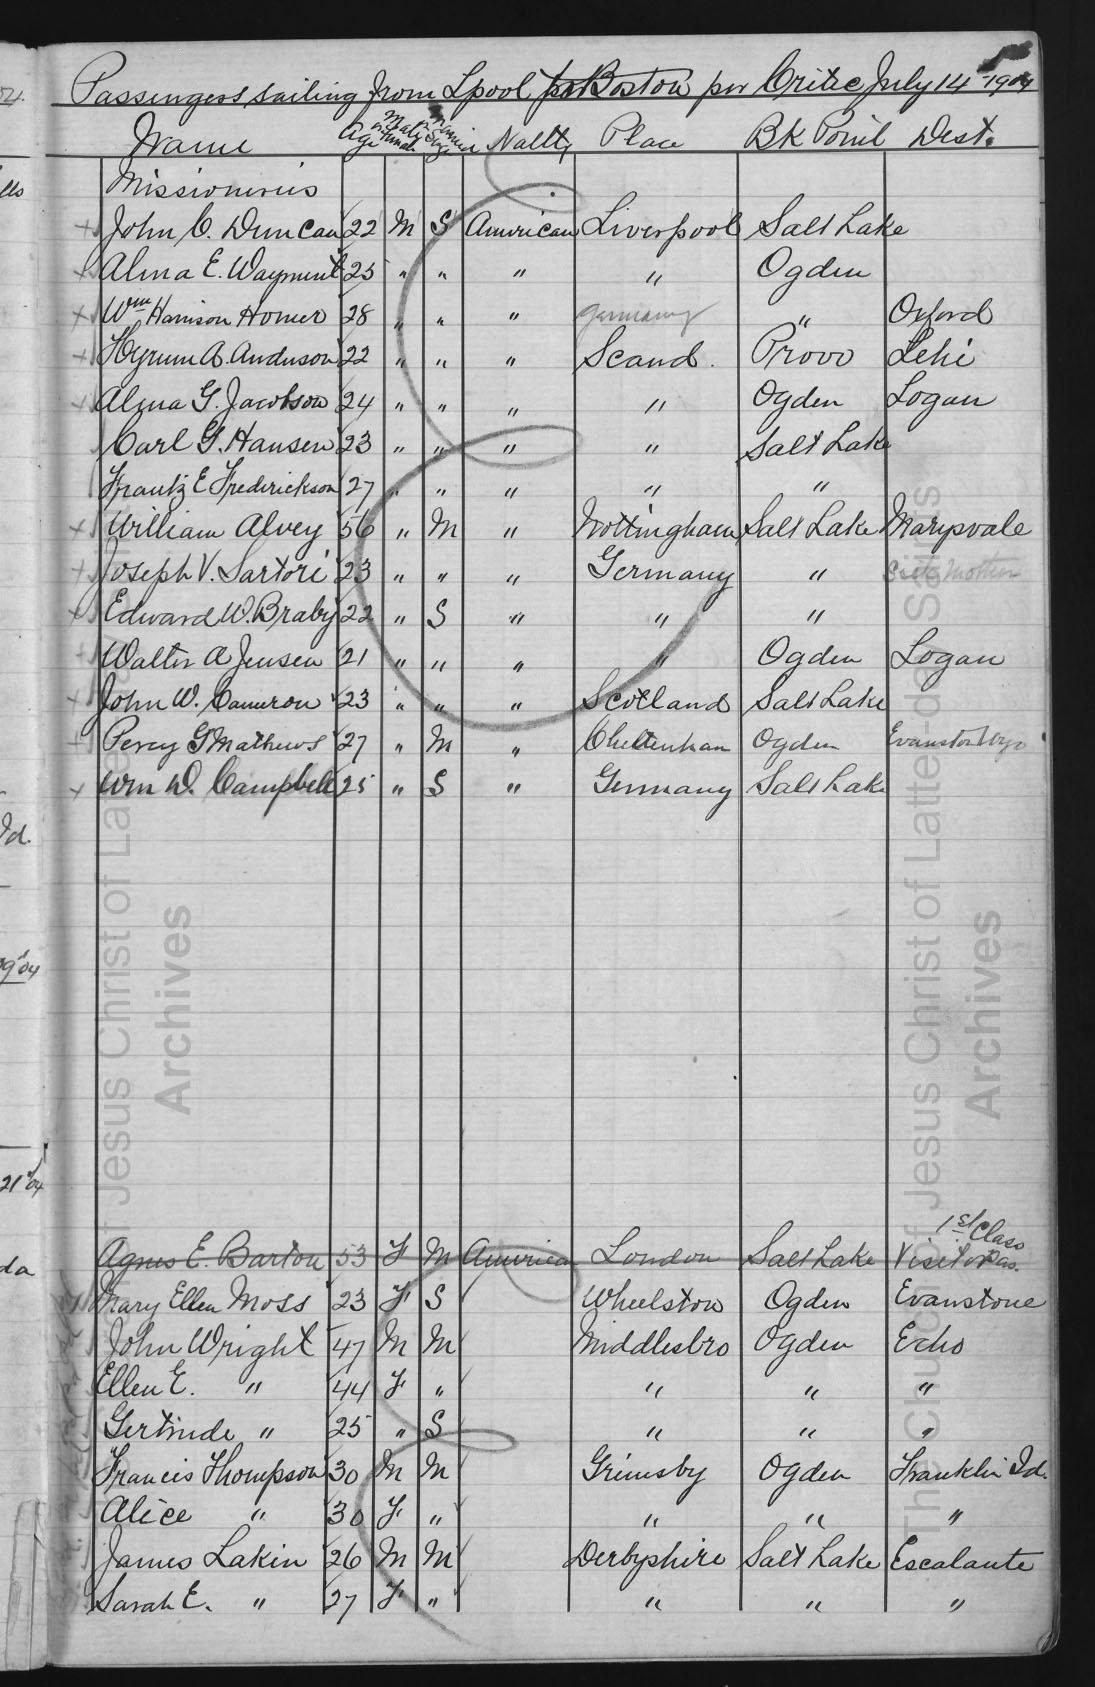 Passengers sailing from Lpool for Boston per Critic July 14 - 1904
Name Age Male or Female Married or Single Natlty Place BK Point Dest.
Missionaries
John C. Duncan 22 M S American Liverpool Salt Lake
Alma E. Wayment 25 " " " " Ogden
Wm Harrison Homer 28 " " " Germany " Oxford
Hyrum A. Anderson 22 " " " Scand. Provo Lehi
Alma G. Jacobson 24 " " " " Ogden Logan
Carl G. Hansen 23 " " " " Salt Lake
Frantz E Frederickson 27 " " " " "
William Alvey 56 " M " Nottingham Salt Lake Marysvale
Joseph V. Sartori 23 " " " Germany "
Edward W. Braby 22 " S " " "
Walter A Jensen 21 " " " " Ogden Logan
John W. Cameron 23 " " " Scotland Salt Lake
Percy G Mathews 27 " M " Cheltenham Ogden Evanston Wyo
Wm D. Campbell 25 " S " Germany Salt Lake
1st Class
Agnes E. Barton 53 F M American London Salt Lake Visitor Pas.
Mary Ellen Moss 23 F S Wheelston Ogden Evanstone
John Wright 47 M M Middlesbro Ogden Echo
Ellen E. " 44 F " " " "
Gertrude " 25 " S " " "
Francis Thompson 30 M M Grimsby Ogden Franklin Id.
Alice " 30 F " " " "
James Lakin 26 M M Derbyshire Salt Lake Escalante
Sarah E. " 27 F " " " "
04.
lls
Id.
9"04
21"04
da
The Church of Jesus Christ of Latter-day Saints
Archives
The Church of Jesus Christ of Latter-day Saints
Archives